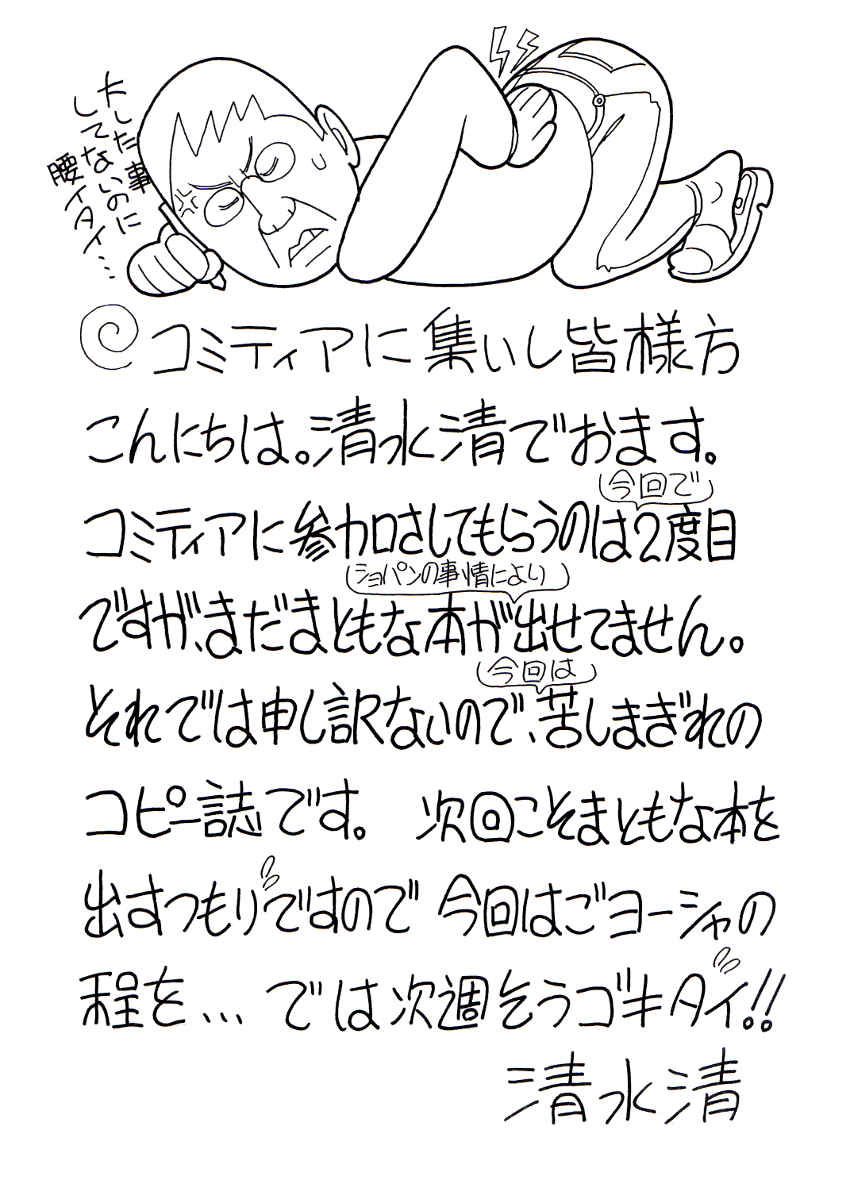 大した事
してないのに
腰イタイ…
コミティアに集いし皆様方
こんにちは。清水清でおます。
今回で
コミティアに参加さしてもらうのは2度目
ショパンの事情により
ですが、まだまともな本が出せてません。
今回は
それでは申し訳ないので、苦しまぎれの
コピー誌です。 次回こそまともな本を
出すつもりですので 今回はごヨーシャの
程を... では次週そうゴキタイ!!
清水清